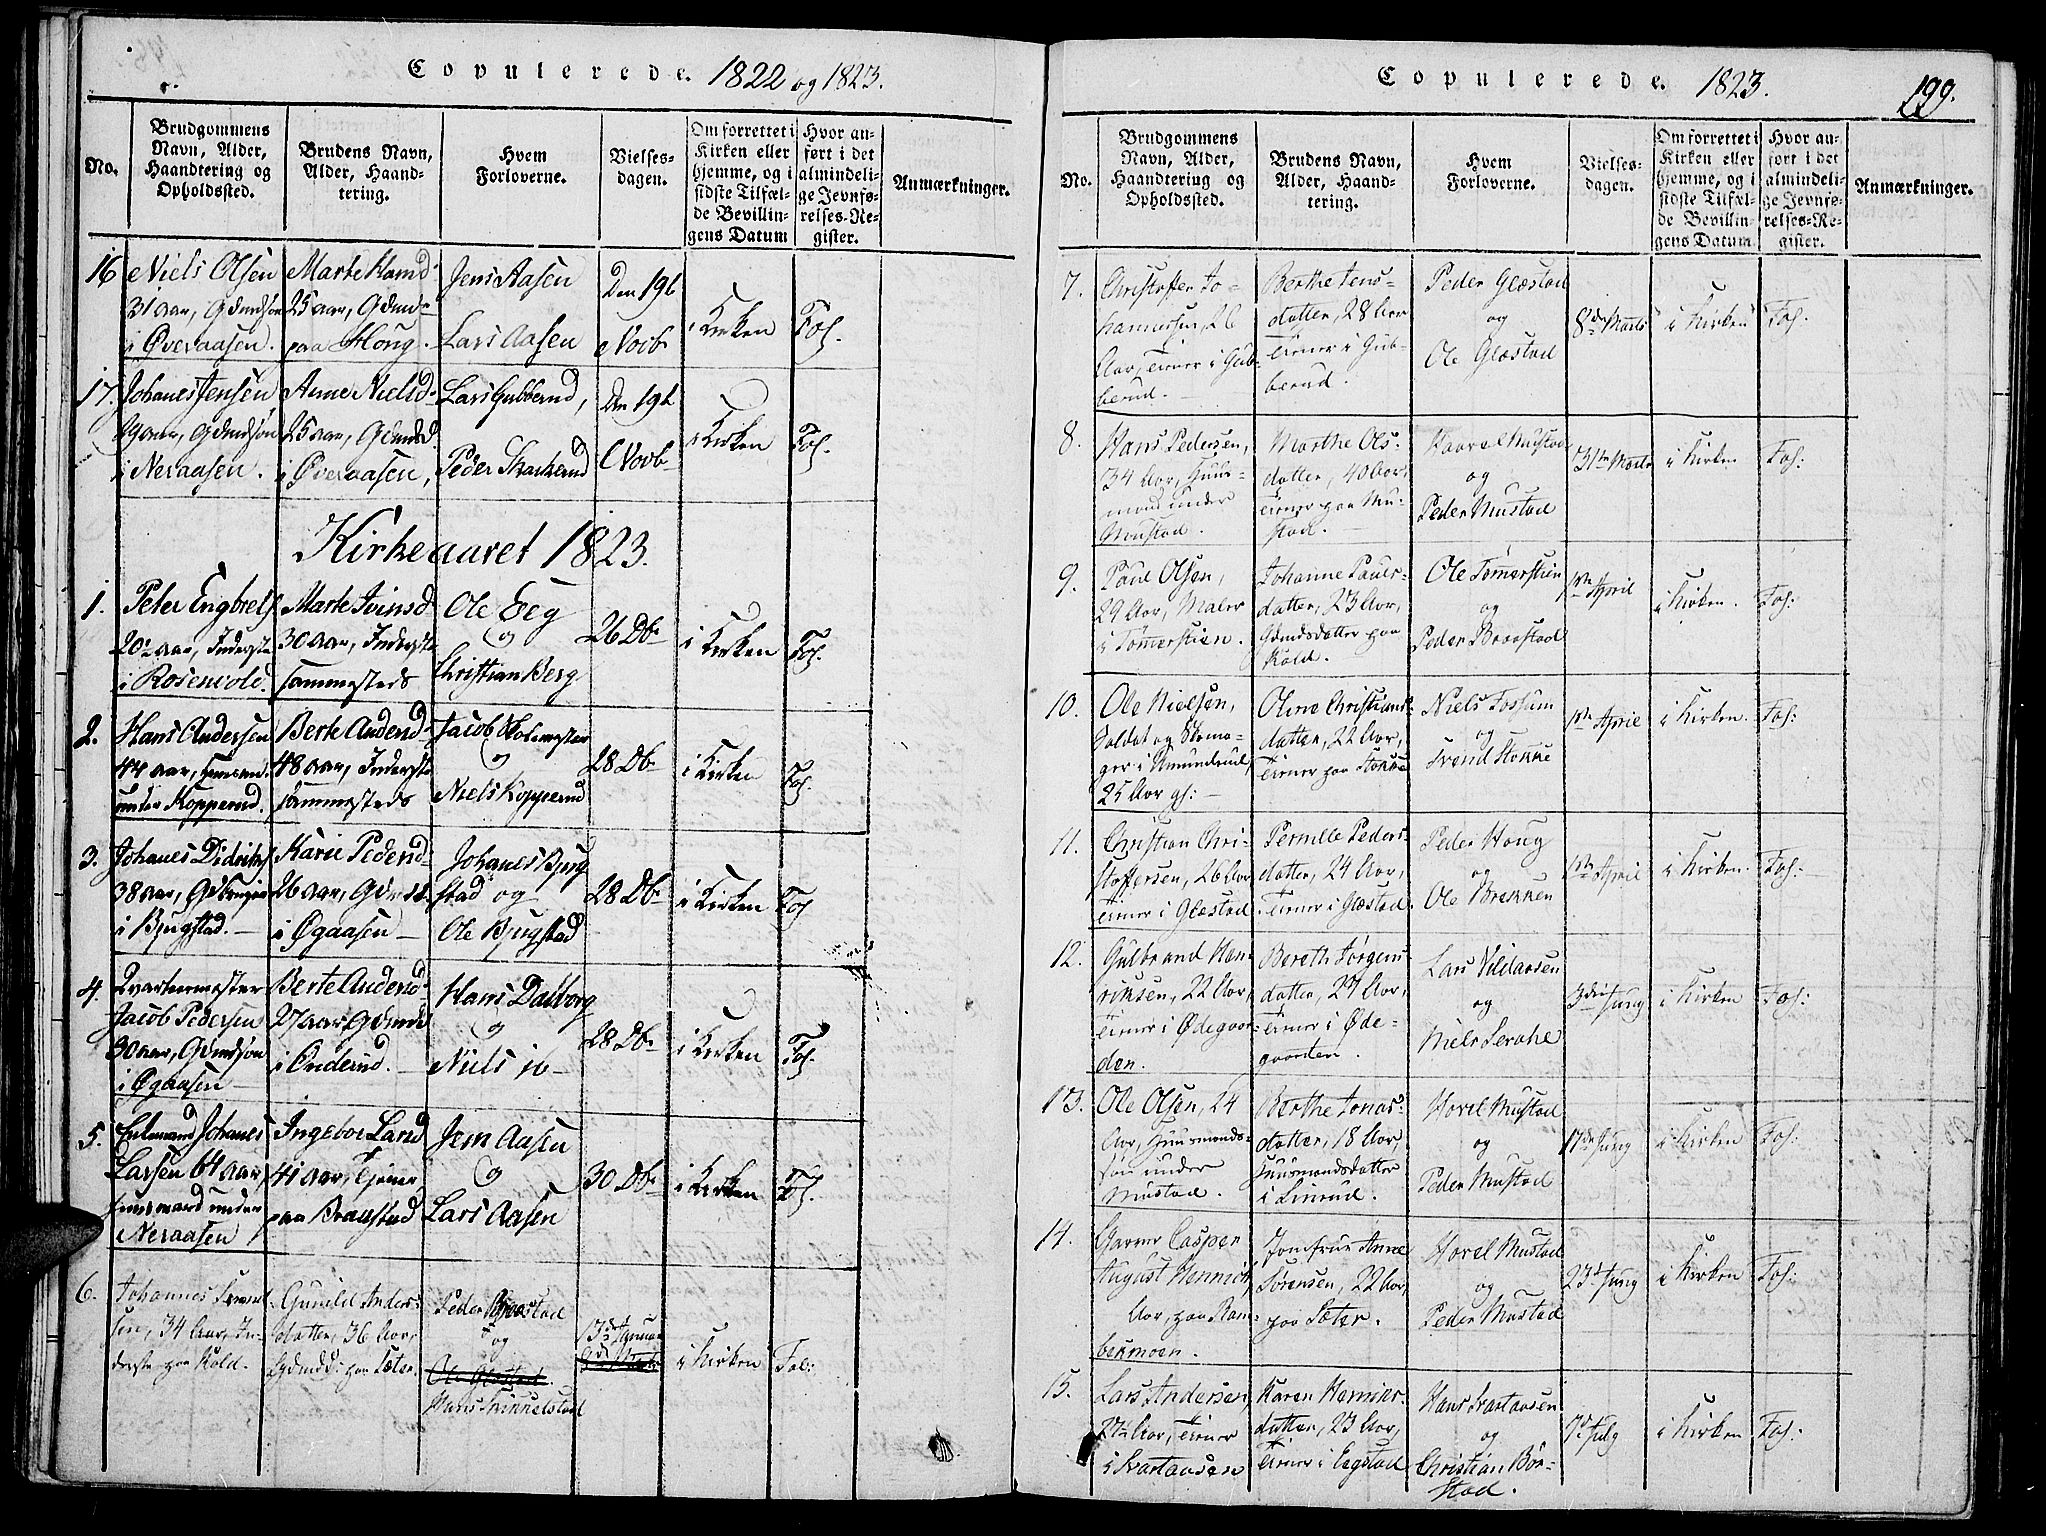 Copulerede. 1822 og 1823.
No.
Brudgommens
Navn, Alder,
Haandtering og
Opholdssted.
Brudens Navn,
Alder, Haand-
tering.
Hvem
Forloverne.
Vielses-
dagen.
Om forrettet i
Kirken eller
hjemme, og i
sidste Tilfæl-
de Bevillin-
gens Datum
Hvor an-
ført i det
almindeli-
ge Jevnfø-
relses-Re-
gister.
Anmærkninger.
16
Niels Olsen
31 aar, Gdmdsøn
i Øveraasen.
Marte Hansd.
25 aar, Gdmd-
paa Houg.
Jens Aasen
Lars Aasen
Den 19de
Novb.
i Kirken
Fol.
17.
Johanes Jensen
29 aar, Gdmdsøn
i Neraasen.
Anne Nielsd.
25 aar, Gdmdsd.
i Øveraasen,
Lars Gubberud,
Peder Skarkerud
Den 19de
Novb.
i Kirken
Fol.
Kirkeaaret 1823.
1.
Peter Engbrets.
20 aar, Inderste
i Rosenvold.
Marte Ivinsd
30 aar, Inderste
sammesteds
Ole Eeg
og
Christian Berg
26 Db.
i Kirken
Fol.
2.
Hans Andersen
44 aar, Huusmd.
under Kopperud.
Berte Andersd.
48 aar, Inderste
sammesteds
Jacob Skolemester
og
Niels Kopperud
28 Db.
i Kirken
Fol.
3.
Johanes Didriks.
38 aar, Gdbruger
i Bjugstad.
Karie Pedersd.
26 aar, Gdmdsd.
i Øgaasen
Johanes Bjug-
stad og
Ole Bjugstad
28 Db.
i Kirken
Fol.
4.
Qvarteermester
Jacob Pedersen
30 aar, Gdmdsøn
i Øgaasen
Berte Andersd.
27 aar, Gdmdsd.
i Onderud.
Hans Dalborg
og
Niels
28 Db.
i Kirken
Fol.
5.
Enkemand Johanes
Larsen 64 aar,
Huusmand under
Neraasen
Ingebor Land
41 aar, Tjener
paa Braastad
Jens Aasen
og
Lars Aasen
30 Db.
i Kirken
Fol.
6.
Johannes
sen, 34 Aar, In-
derste paa Kold.
Gunild Anders-
datter, 36 Aar,
Gdmdsd: paa Sæter.
Peder Braastad
og
Ole Glæstad.
Hans Kinnelstad
13de Januar
i Kirken
Fol:
Copulerede. 1823.
199.
No.
Brudgommens
Navn, Alder,
Haandtering og
Opholdssted.
Brudens Navn,
Alder, Haand-
tering.
Hvem
Forloverne.
Vielses-
dagen.
Om forrettet i
Kirken eller
hjemme, og i
sidste Tilfæl-
de Bevillin-
gens Datum.
Hvor an-
ført i det
almindeli-
ge Jevnfø-
relses-Re-
gister.
Anmærkninger.
7.
Christoffer Jo-
hannessen, 26
Aar, Tiener i Gub-
berud.
Berthe Jens-
datter, 28 Aar
Tiener i Gub-
berud.
Peder Glæstad
og
Ole Glæstad
8de Marts
i Kirken
Fol.
8.
Hans Pedersen,
34 Aar, Huus-
mand under
Mustad.
Marthe Ols-
datter, 40 Aar,
Tiener paa Mu-
stad.
Haavel Mustad
og
Peder Mustad
31te Marts
i Kirken
Fol:
9.
Paul Olsen,
29 Aar, Maler
i Tømmerstien.
Johanne Pauls-
datter, 23 Aar,
Gdmdsdatter paa
Kold.
Ole Tømmerstien
og
Peder Braastad
1ste April
i Kirken.
Fol:
10.
Ole Nielsen,
Soldat og Skoma-
ger i Amundrud,
25 Aar gl:
Oline Christians-
datter, 22 Aar,
Tiener paa Stokke
Niels Fossum
og
Svend Stokke
1ste April
i Kirken.
Fol:
11.
Christian Chri-
stoffersen, 26 Aar
Tiener i Glæstad
Pernille Peders-
datter, 24 Aar,
Tiener i Glæstad.
Peder Houg
og
Ole Brekken
1ste April
i Kirken.
Fol:
12.
Gulbrand Hen-
riksen, 22 Aar,
Tiener i Ødegaar-
den.
Bereth Jørgens-
datter, 27 Aar,
Tiener i Øde-
gaarden.
Lars Vildaasen
og
Niels Lerake
3die Juny
i Kirken
Fol:
13.
Ole Olsen, 24
Aar, Huusmands-
søn under
Mustad.
Berthe Jonas-
datter, 18 Aar
Huusmandsdatter
i Linrud.
Hovel Mustad
og
Peder Mustad
17de Juny
i Kirken
Fol:
14.
Garver Casper
August Hennich,
Aar, paa Ram-
bekmoen.
Jomfrue Anne
Sørensen, 22 Aar,
paa Sæter.
Hovel Mustad
og
Peder Mustad
23de Juny
i Kirken
Fol:
15.
Lars Andersen,
27 Aar, Tiener
i Svartaasen
Karen Henriks-
datter, 23 Aar,
Tiener i Eegstad
Hans Svartaasen
og
Christian Bør-
stad.
7de July
i Kirken
Fol: